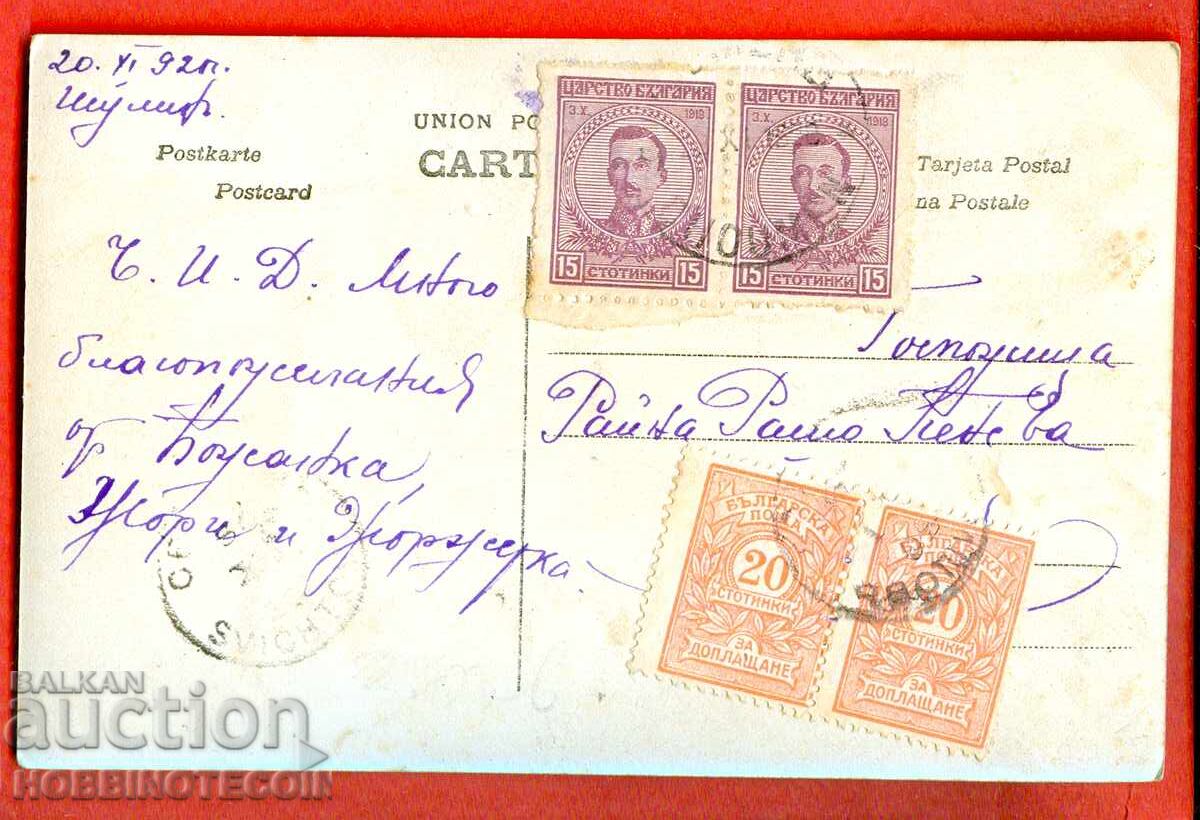 20. XI 92
UNION PO
CART
Postkarte
Postcard
Tarjeta Postal
na Postale
ЦАРСТВО БЪЛГАРИЯ
3.X. 1918
15 СТОТИНКИ 15
ЦАРСТВО БЪЛГАРИЯ
3.X. 1918
15 СТОТИНКИ 15
Ч. И. Д. Много
благопожелания
от
Жорж и Жоржетка
Госпожица
Райна Рашо Пенева
БЪЛГАРСКА
ПОЩА
20
СТОТИНКИ
ЗА
ДОПЛАЩАНЕ
20
СТОТИНКИ
ЗА
ДОПЛАЩАНЕ
SWICHTO
BALKAN
auction
HOBBINOTECOIN